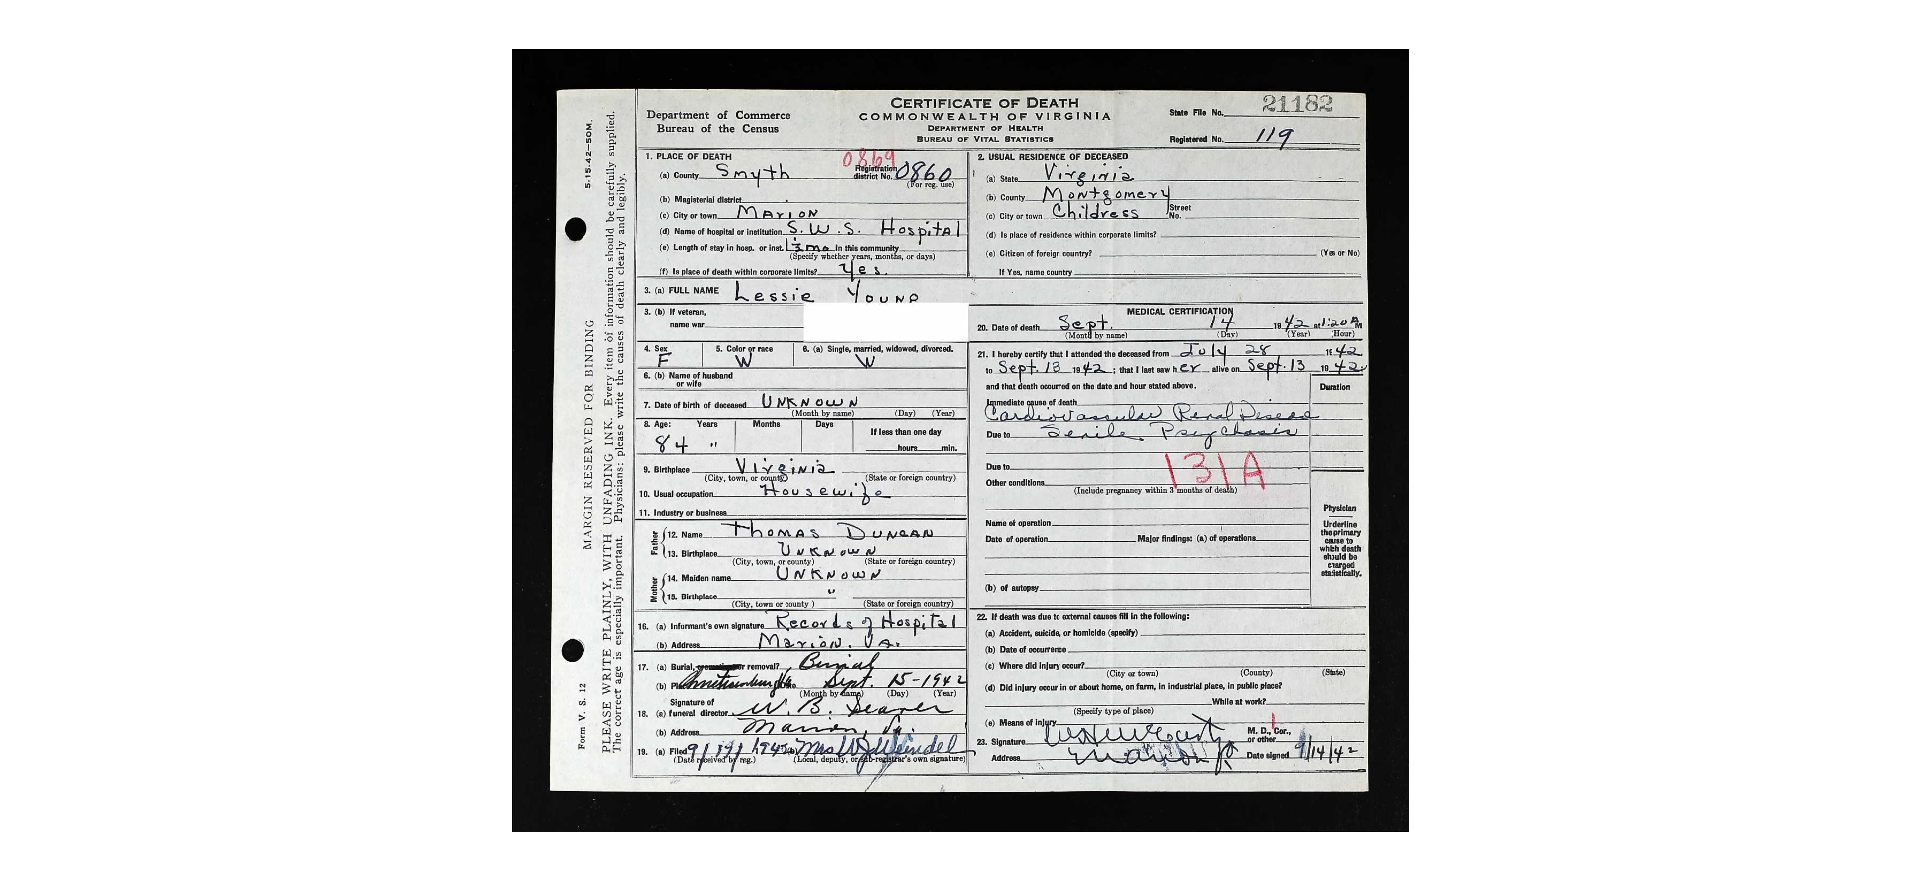 CERTIFICATE OF DEATH
COMMONWEALTH OF VIRGINIA
DEPARTMENT OF HEALTH
BUREAU OF VITAL STATISTICS
Department of Commerce
Bureau of the Census
State File No. 21182
Registered No. 119
5-15-42—50M.
MARGIN RESERVED FOR BINDING
Form V. S. 12
PLEASE WRITE PLAINLY, WITH UNFADING INK. Every item of information should be carefully supplied.
The correct age is especially important. Physicians: please write the causes of death clearly and legibly.
1. PLACE OF DEATH
0869
(a) County Smyth Registration district No. 0860
(For reg. use)
(b) Magisterial district
(c) City or town Marion
(d) Name of hospital or institution S.W.S. Hospital
(e) Length of stay in hosp. or inst. 1½ mo In this community
(Specify whether years, months, or days)
(f) Is place of death within corporate limits? Yes.
2. USUAL RESIDENCE OF DECEASED
(a) State Virginia
(b) County Montgomery
(c) City or town Childress Street No.
(d) Is place of residence within corporate limits?
(e) Citizen of foreign country? (Yes or No)
If Yes, name country
3. (a) FULL NAME Lessie Young
3. (b) If veteran,
name war
4. Sex F
5. Color or race W
6. (a) Single, married, widowed, divorced. W
6. (b) Name of husband
or wife
7. Date of birth of deceased Unknown
(Month by name) (Day) (Year)
8. Age: Years Months Days If less than one day
84 " hours min.
9. Birthplace Virginia
(City, town, or county) (State or foreign country)
10. Usual occupation Housewife
11. Industry or business
Father
12. Name Thomas Duncan
13. Birthplace Unknown
(City, town, or county) (State or foreign country)
Mother
14. Maiden name Unknown
15. Birthplace "
(City, town or county) (State or foreign country)
16. (a) Informant's own signature Records of Hospital
(b) Address Marion, Va.
17. (a) Burial, cremation or removal? Burial
(b) Sept. 15-1942
(Month by name) (Day) (Year)
Signature of
18. (a) funeral director W. B. Seaver
(b) Address Marion, Va.
19. (a) Filed (b) Mrs
(Date received by reg.) (Local, deputy, or sub-registrar's own signature)
MEDICAL CERTIFICATION
20. Date of death Sept. 14 1942 at 1:20 A M
(Month by name) (Day) (Year) (Hour)
21. I hereby certify that I attended the deceased from July 28 1942
to Sept. 13 1942; that I last saw her alive on Sept. 13 1942
and that death occurred on the date and hour stated above.
Duration
Immediate cause of death
Cardiovascular Renal Disease
Due to Senile Psychosis
Due to
131A
Other conditions
(Include pregnancy within 3 months of death)
Name of operation
Date of operation Major findings: (a) of operations
(b) of autopsy
Physician
Underline
the primary
cause to
which death
should be
charged
statistically.
22. If death was due to external causes fill in the following:
(a) Accident, suicide, or homicide (specify)
(b) Date of occurrence
(c) Where did injury occur?
(City or town) (County) (State)
(d) Did injury occur in or about home, on farm, in industrial place, in public place?
While at work?
(Specify type of place)
(e) Means of injury
23. Signature M. D., Cor., or other
Address Marion Date signed 9/14/42